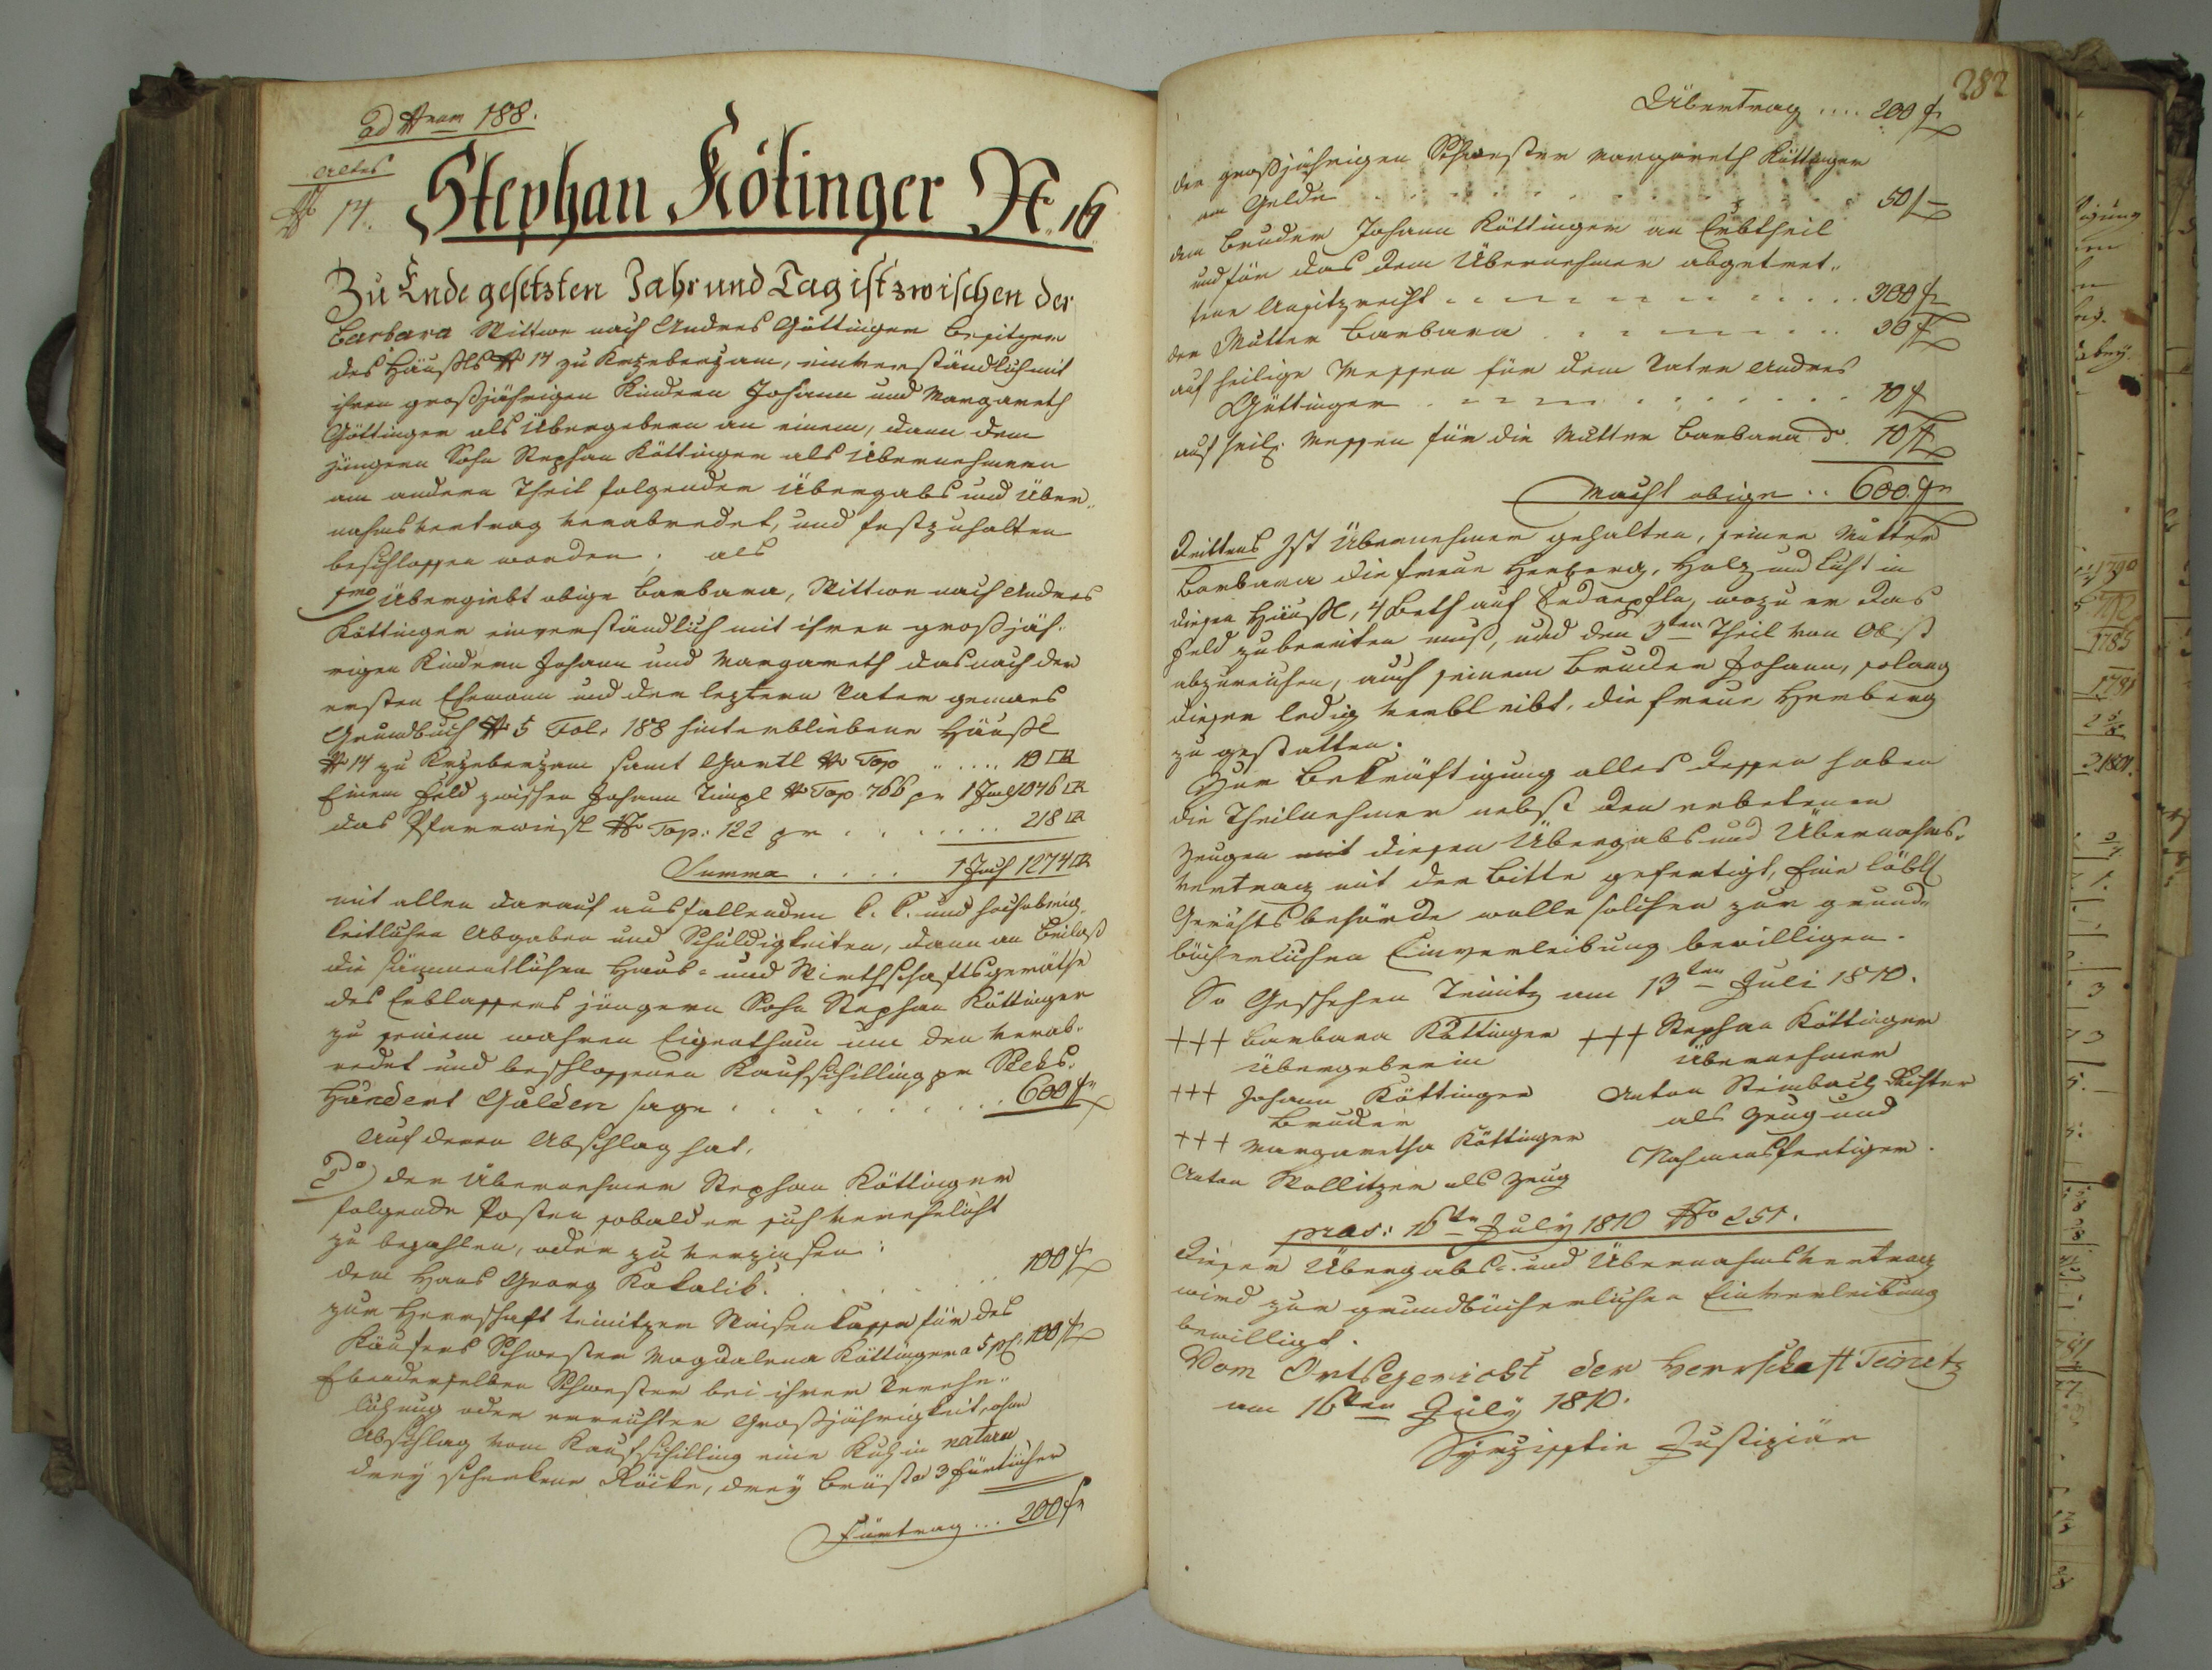 ad Nrum 188.
Altes
No 14.
Stephan Kötinger Nr. 16
Zu Ende gesetzten Jahr und Tag ist zwischen der
Barbara Wittwe nach Andres Göttinger Besitzer
des Häußls No 14 zu, einverständlich mit
ihren großjährigen Kindern Johann und Margareth
Göttinger als Übergebern an einem, dann dem
jüngern Sohn Stephan Köttinger als Übernehmern
am andern Theil folgender Übergabs und Über„
nahmsvertrag verabredet, und festzuhalten
beschlossen worden; als
1mo Übergiebt obige Barbara, Wittwe nach Andres
Köttinger einverständlich mit ihren großjäh„
rigen Kindern Johann und Margareth das nach der
ersten Ehemann und der leztern Vater gemaes
Grundbuch No 5 Fol. 188 hinterbliebene Häußl
No 14 zu samt Gartl No Top ..... 10 □R
Einem Feld zwischen Johann Timpl No Top 766 pr 1 Joch 1046 □R
das No Top: 122 pr ....... 218 □R
Summa .... 1 Joch 1274 □R
mit allen darauf ausfallenden k. k. und hochobrig„
keitlichen Abgaben und Schuldigkeiten, dann an Beilaß
die sämmentlichen Haus= und Wirthschaftsgeräthe
des Erblassers jüngern Sohn Stephan Köttinger
zu seinem wahren Eigenthum um den verab„
redet und beschlossenen Kaufschilling pr Sechs„
Hundert Gulden sage ......... 600 fr
Auf deren Abschlag hat,
2do) der Übernehmer Stephan Köttinger
folgende Posten sobald er sich verehelicht
zu bezahlen, oder zu verzinsen:
dem Hans Georg Kokalik ..... 100 f
zur Herrschaft teinitzer Waisenkasse für des
Käufers Schwester Magdalena Köttinger a 5 pf. 100 f
Ebenderselben Schwester bei ihrer Verehe„
lichung oder erreichter Großjährigkeit, ohne
Abschlag vom Kaufschilling eine Kuh in natura
drey Röcke, drey 3 Fürtücher
Fürtrag ... 200 fr
282
Übertrag .... 200 fr
der großjährigen Schwester Margareth Köttinger
an Gelde ........ 50 f
dem Bruder Johann Köttinger an Erbtheil
und für das dem Übernehmer abgetret„
tene Ansitzrecht ........ 200 fr
der Mutter Barbara ........ 30 f
auf heilige Messen für dem Vater Andres
Göttinger ........ 10 f
auf heil. Messen für die Mutter Barbara do. 10 f
Macht obige .. 600. fr
Drittens Ist Übernehmer gehalten, seiner Mutter
Barbara die freue Herberg, Holz und Licht in
diesen Häußl, 4 Beth auf Erdaepfln, wozu er das
Feld zubereiten muß, und den 3ten Theil von Obst
abzureichen, auch seinem Bruder Johann, solang
dieser ledig verbleibt, die freue Herberg
zu gestatten.
Zur Bekräftigung alles dessen haben
die Theilnehmer nebst den erbetenen
Zeugen mit diesen Übergabs und Übernahms„
vertrag mit der Bitte gefertigt, Eine löbl.
Gerichtsbehörde wolle solchen zur grund„
bücherlichen Einverleibung bewilligen.
So Geschehen Teinitz am 13ten Juli 1810.
+++ Barbara Köttinger +++ Stephan Köttinger
Übergeberin Übernehmer
+++ Johann Köttinger Anton Steinbach Richter
Bruder als Zeug und
+++ Margaretha Köttinger Nahmensfertiger.
Anton Wollitzer als Zeug
pras: 16ten July 1810 No 251.
Dieser Übergabs= und Übernahmsvertrag
wird zur grundbücherlichen Einverleibung
bewilligt.
Vom Ortsgericht der Herrschaft Teinitz
am 16ten July 1810.
Justiziär